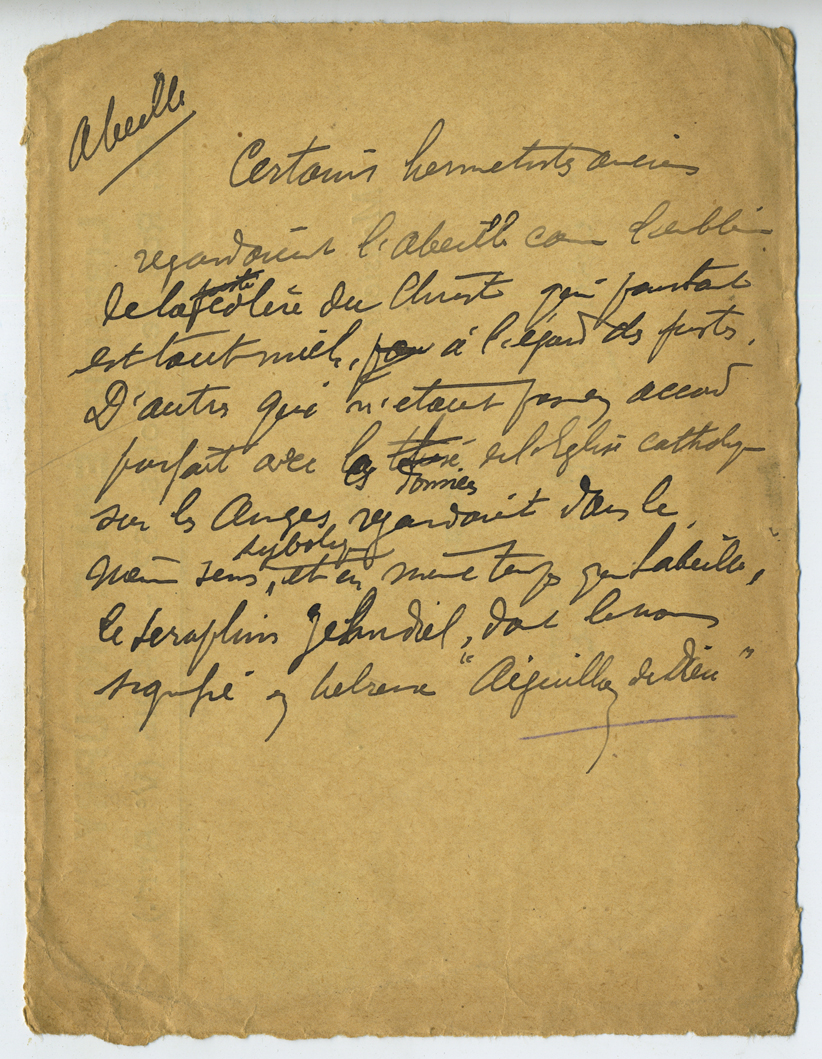 Abeille
Certains hermetistes anciens
regardaient l'abeille com l'emblème
juste
de la colère du Christ qui pourtant
est tout miel, à l'égard des justes.
D'autres qui n'étant pas en accord
parfait avec la thèse de l'Eglise catholique
les données
sur les Anges, regardaient dans le
symbolique
même sens, et en même temps que l'abeille,
le seraphins Jehudiel, dont le nom
signifie en hebreu "Aiguillon de Dieu"